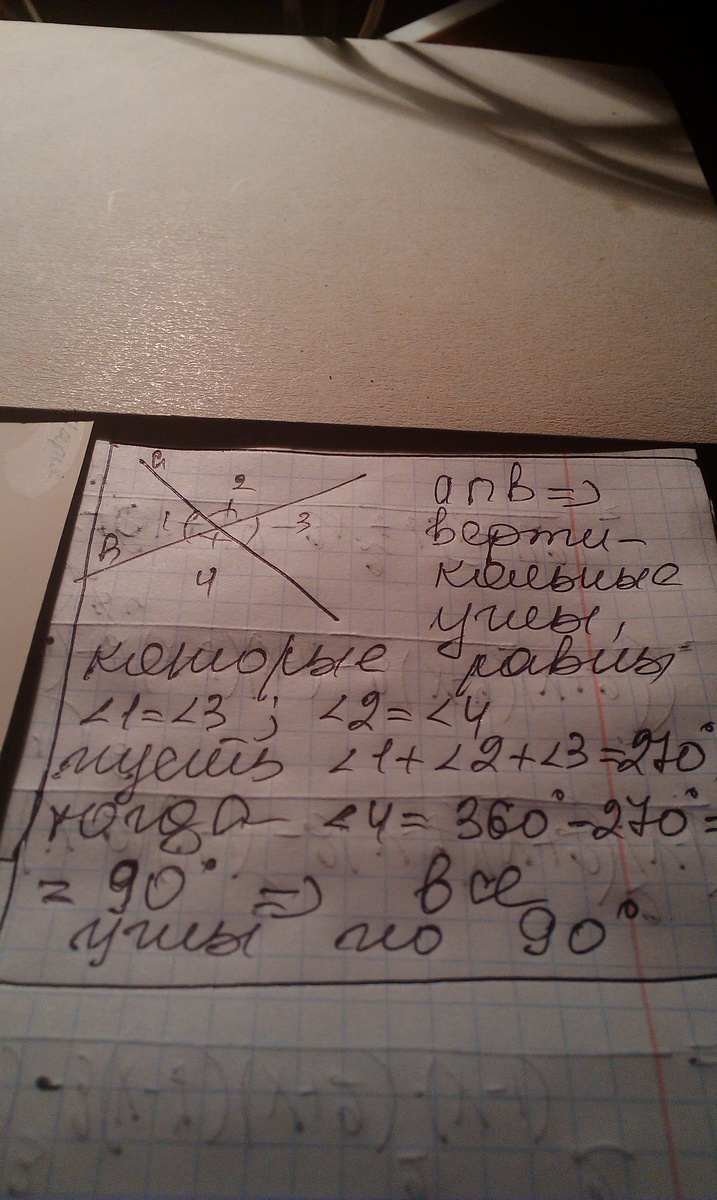 a
2
1
3
B
4
a ∩ B =>
верти-
кальные
углы,
которые равны
∠1=∠3 ; ∠2=∠4
пусть ∠1+∠2+∠3=270°
тогда ∠4= 360°-270°=
= 90° => все
углы по 90°